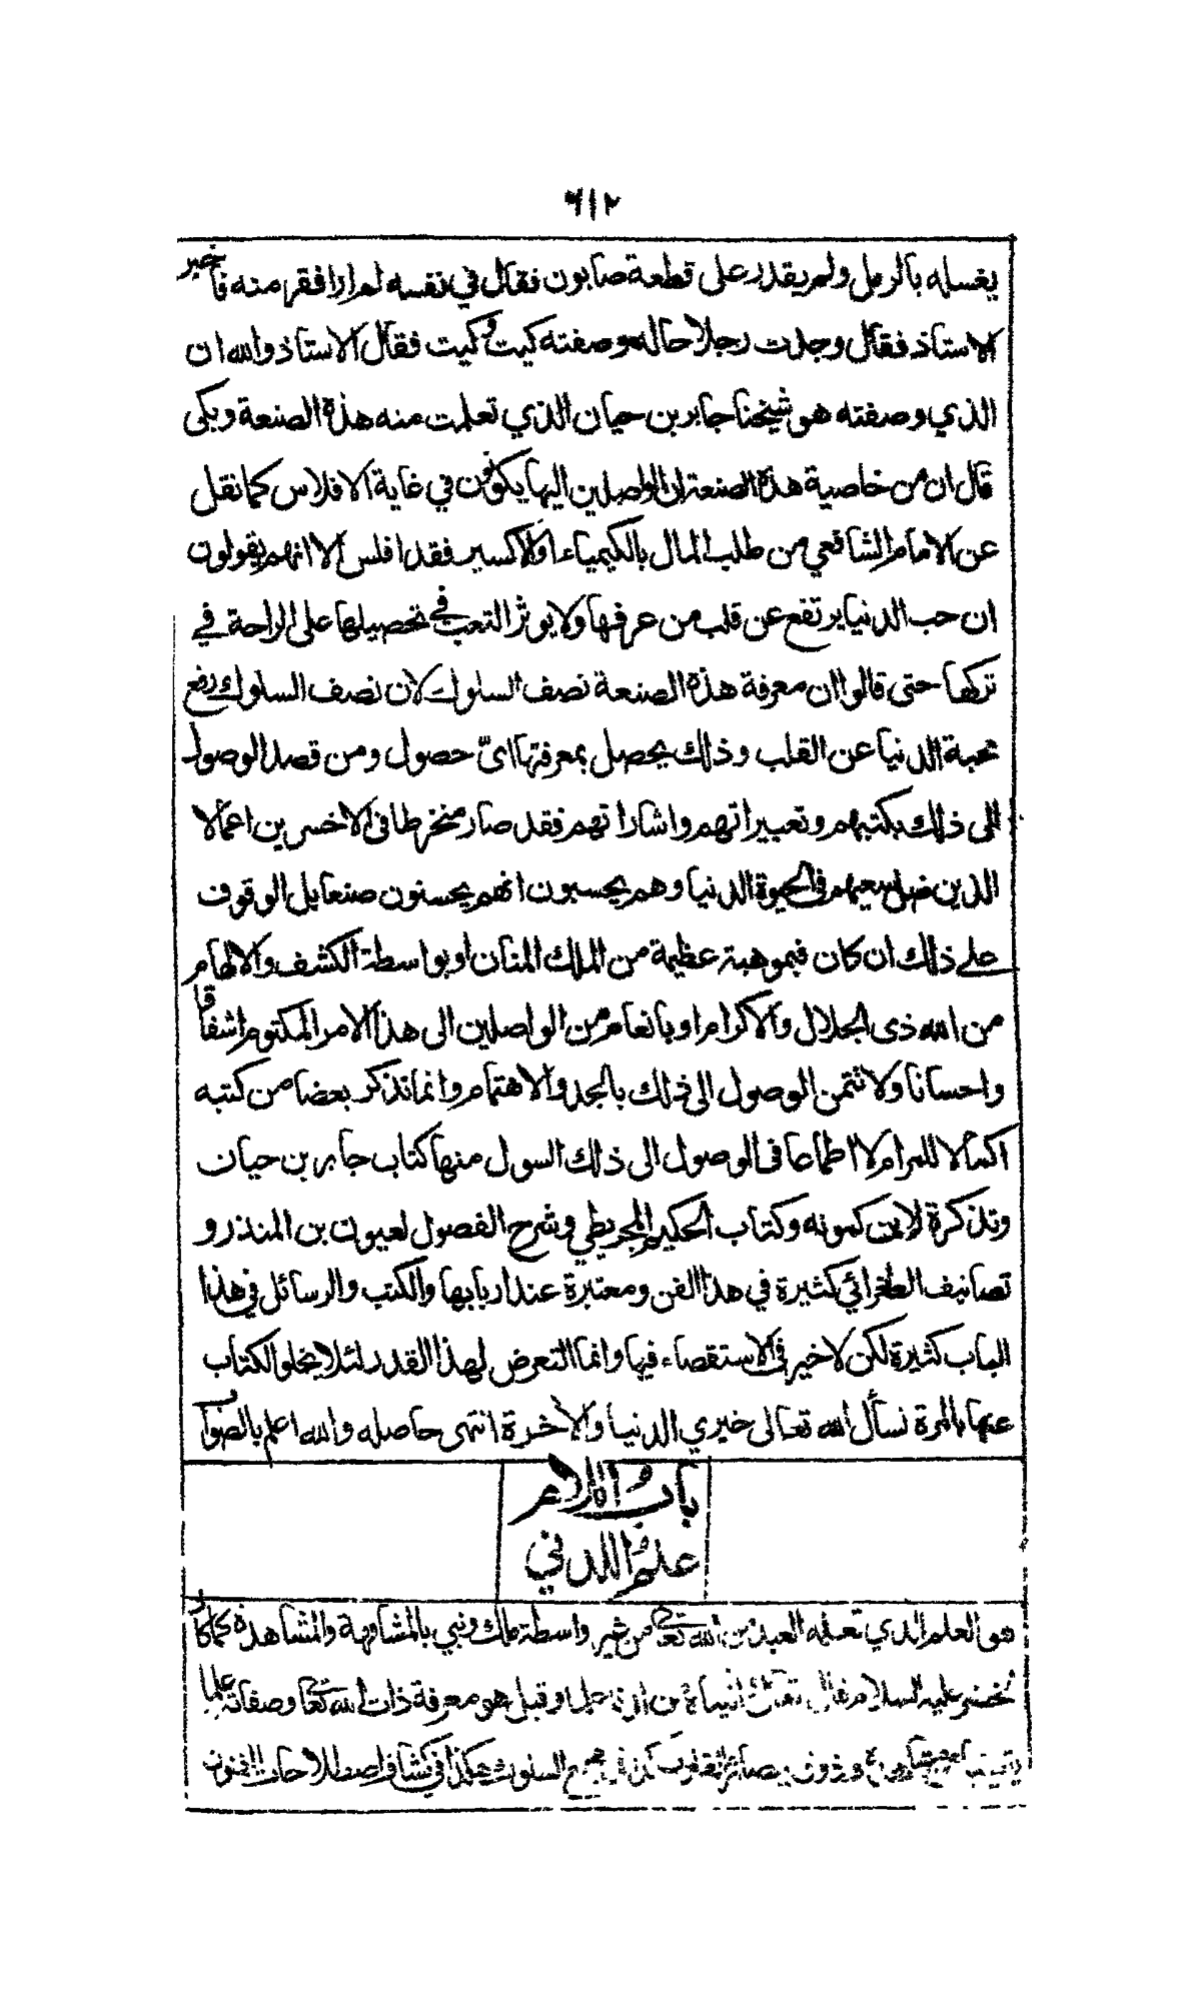 ٦١٢
يغسله بالرمل ولم يقدر على قطعة صابون فقال في نفسه لم ار افقر منه فاخبر
الاستاذ فقال وجدت رجلا حاله وصفته كيت وكيت فقال الاستاذ والله ان
الذي وصفته هو شيخنا جابر بن حيان الذي تعلمت منه هذه الصنعة وبكى
قال ان من خاصية هذه الصنعة ان الواصلين اليها يكونون في غاية الافلاس كما نقل
عن الامام الشافعي من طلب المال بالكيمياء او الاكسير فقد افلس الا انهم يقولون
ان حب الدنيا يرتفع عن قلب من عرفها ولا يوثر التعب في تحصيلها على الراحة في
تركها حتى قالوا ان معرفة هذه الصنعة نصف السلوك لان نصف السلوك رفع
محبة الدنيا عن القلب وذلك يحصل بمعرفتها اىّ حصول ومن قصد الوصول
الى ذلك بكتبهم وتعبيراتهم واشاراتهم فقد صار منخرطا فى الاخسرين اعمالا
الذين ضل سعيهم فى الحيوة الدنيا وهم يحسبون انهم يحسنون صنعا بل الوقوف
على ذلك ان كان فبموهبة عظيمة من الملك المنان او بواسطة الكشف والالهام
من الله ذى الجلال والاكرام او بانعام من الواصلين الى هذا الامر المكتوم اشفاقا
واحسانا ولا تتمن الوصول الى ذلك بالجد والاهتمام وانما نذكر بعضا من كتبه
اكمالا للمرام لا اطماعا فى الوصول الى ذلك السول منها كتاب جابر بن حيان
وتذكرة لابن كمونه وكتاب الحكيم المجريطي وشرح الفصول لعيون بن المنذر و
تصانيف الطغرائي كثيرة في هذا الفن ومعتبرة عند اربابها والكتب والرسائل في هذا
الباب كثيرة لكن لا خير فى الاستقصاء فيها وانما التعرض لهذا القدر لئلا يخلو الكتاب
عنها بالمرة نسأل الله تعالى خيري الدنيا والاخرة انتهى حاصله والله اعلم بالصواب
باب اللام
علم اللدني
هو العلم الذي تعلمه العبد من الله تعالى من غير واسطة ملك ونبي بالمشافهة والمشاهدة كما كان
لخضر عليه السلام قال تعالى اتيناه من لدنا علما وقيل هو معرفة ذات الله تعالى وصفاته علما
يقينيا من مشاهدة وذوق ببصائر القلوب كذا في مجمع السلوك هكذا في كشاف اصطلاحات الفنون